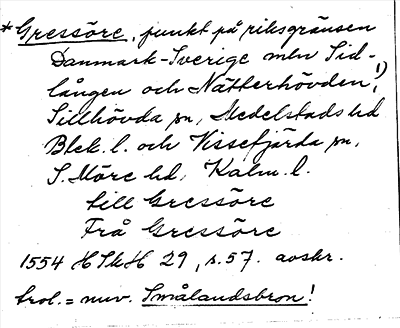 *Gressöre, punkt på riksgränsen
Danmark-Sverige mln Sid-
lången och Nätterhövden!)
Sillhövda sn, Medelstads hd
Blek. l. och Vissefjärda sn,
S. Möre hd, Kalm. l.
till Gressöre
Frå Gressöre
1554 HSkH 29, s. 57. avskr.
trol. = nuv. Smålandsbron!